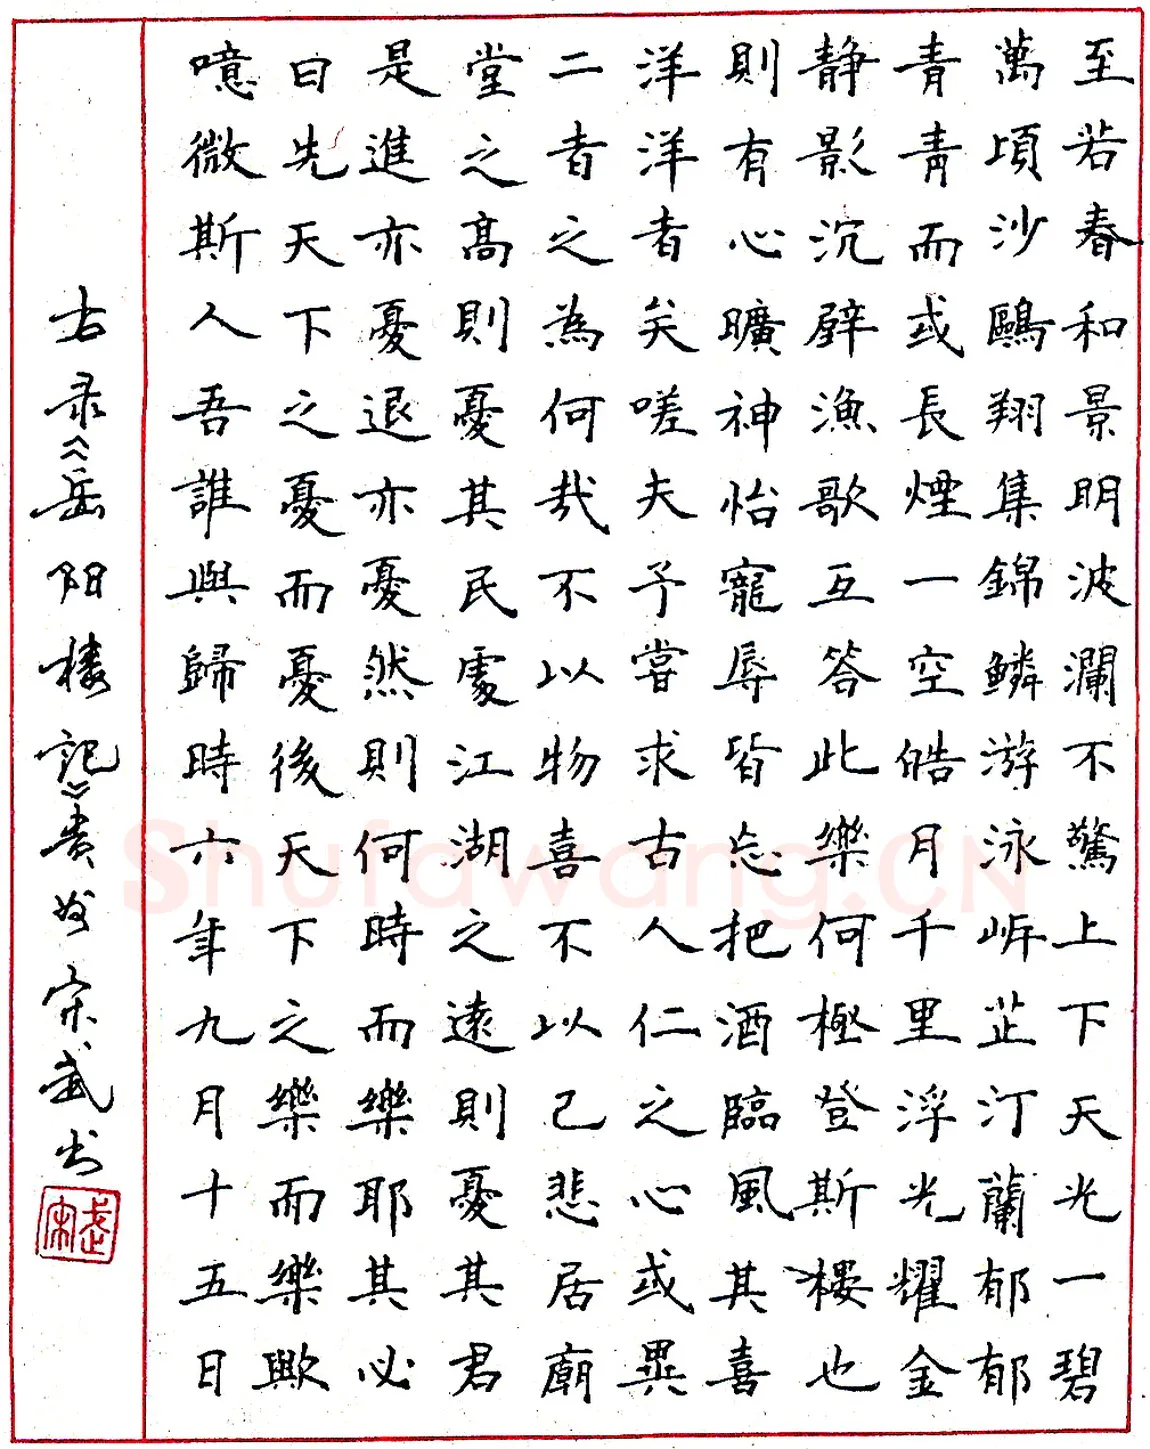 至若春和景明波瀾不驚上下天光一碧
萬頃沙鷗翔集錦鱗游泳岍芷汀蘭郁郁
青青而或長煙一空皓月千里浮光耀金
静影沉璧漁歌互答此樂何極登斯樓也
則有心曠神怡寵辱皆忘把酒臨風其喜
洋洋者矣嗟夫予嘗求古人仁之心或異
二者之為何哉不以物喜不以己悲居廟
堂之高則憂其民處江湖之遠則憂其君
是進亦憂退亦憂然則何時而樂耶其必
曰先天下之憂而憂後天下之樂而樂歟
噫微斯人吾誰與歸時六年九月十五日
古录《岳阳楼记》贵州宋武书
宋武
Shufawang.CN